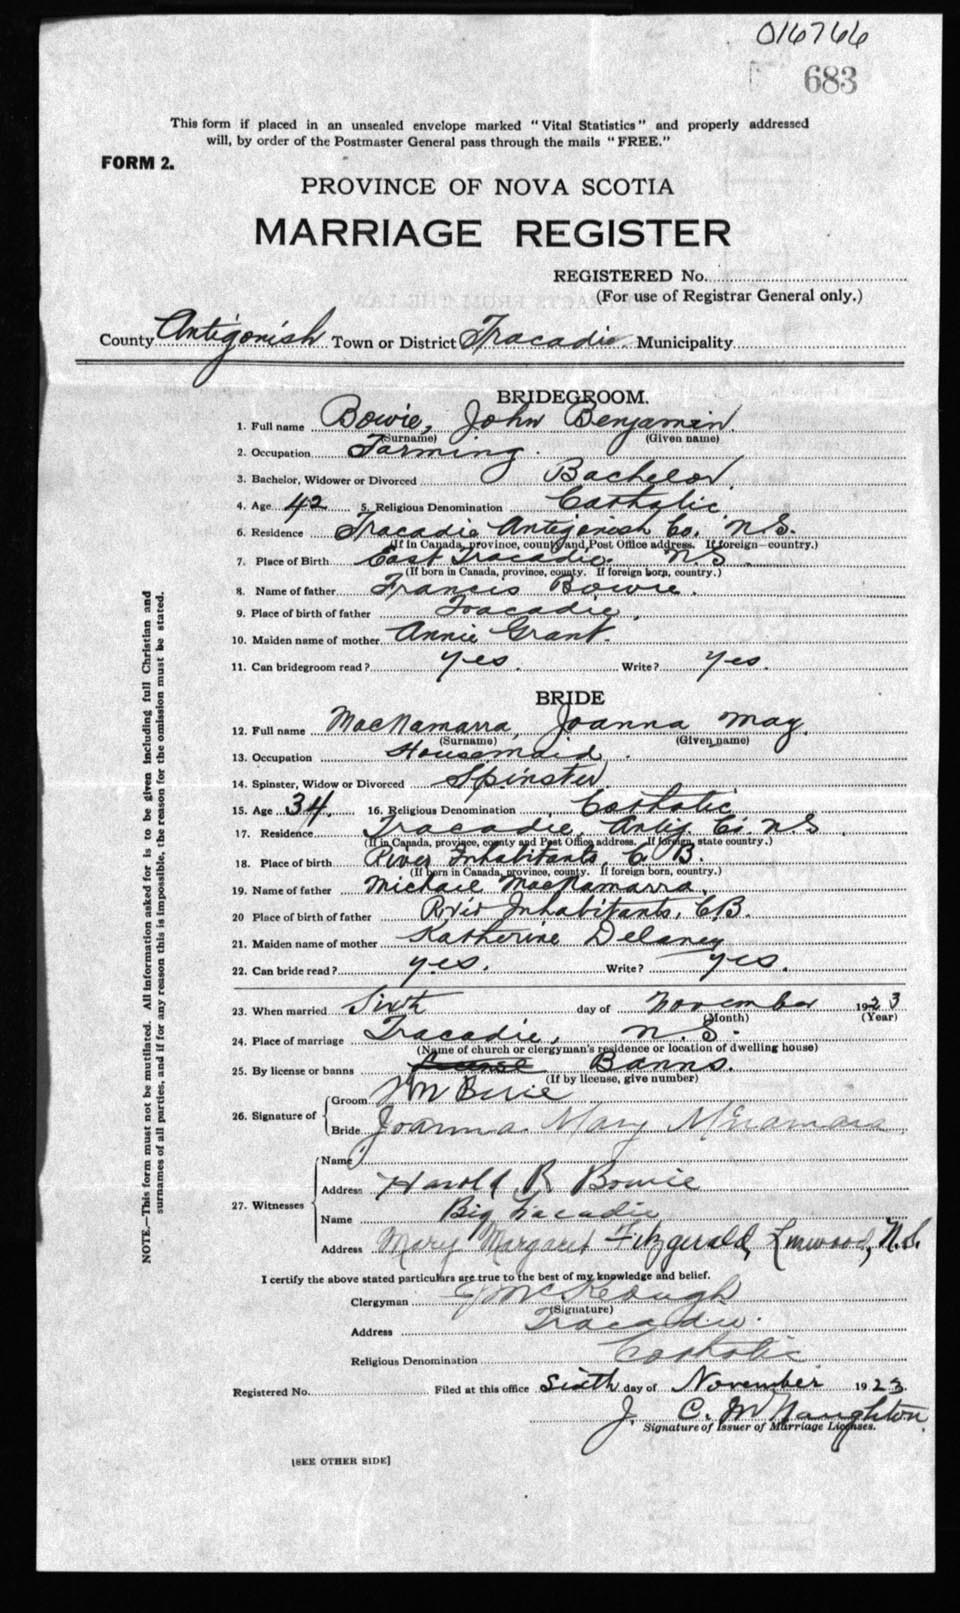 016766
683
This form if placed in an unsealed envelope marked "Vital Statistics" and properly addressed
will, by order of the Postmaster General pass through the mails "FREE."
FORM 2.
PROVINCE OF NOVA SCOTIA
MARRIAGE REGISTER
REGISTERED No.
(For use of Registrar General only.)
County Antigonish Town or District Tracadie. Municipality
BRIDEGROOM.
1. Full name Bowie, John Benjamin.
(Surname) (Given name)
2. Occupation Farming.
3. Bachelor, Widower or Divorced Bachelor.
4. Age 42 5. Religious Denomination Catholic.
6. Residence Tracadie Antigonish Co. N.S.
(If in Canada, province, county and Post Office address. If foreign—country.)
7. Place of Birth East Tracadie. N.S.
(If born in Canada, province, county. If foreign born, country.)
8. Name of father Francis Bowie.
9. Place of birth of father Tracadie.
10. Maiden name of mother Annie Grant.
11. Can bridegroom read? yes. Write? Yes.
BRIDE
12. Full name MacNamarra, Joanna May.
(Surname) (Given name)
13. Occupation Housemaid.
14. Spinster, Widow or Divorced Spinster
15. Age 34. 16. Religious Denomination Catholic
17. Residence Tracadie, Antig. Co. N.S.
(If in Canada, province, county and Post Office address. If foreign, state country.)
18. Place of birth River Inhabitants, C.B.
(If born in Canada, province, county. If foreign born, country.)
19. Name of father Michael MacNamarra.
20 Place of birth of father Inhabitants, C.B.
21. Maiden name of mother Katherine Delaney
22. Can bride read? yes. Write? yes.
23. When married Sixth day of November 1923
(Month) (Year)
24. Place of marriage Tracadie, N.S.
(Name of church or clergyman's residence or location of dwelling house)
25. By license or banns Banns.
(If by license, give number)
26. Signature of
Groom
Bride Joanna Mary
27. Witnesses
Name
Address Harold R Bowie
Name Big Tracadie
Address Mary Margaret Fitzgerald, Linwood, N.S.
I certify the above stated particulars are true to the best of my knowledge and belief.
Clergyman McKeough
(Signature)
Address Tracadie.
Religious Denomination Catholic
Registered No. Filed at this office Sixth day of November 1923.
J. C. McNaughton
Signature of Issuer of Marriage Licenses.
[SEE OTHER SIDE]
NOTE.—This form must not be mutilated. All information asked for is to be given including full Christian and
surnames of all parties, and if for any reason this is impossible, the reason for the omission must be stated.